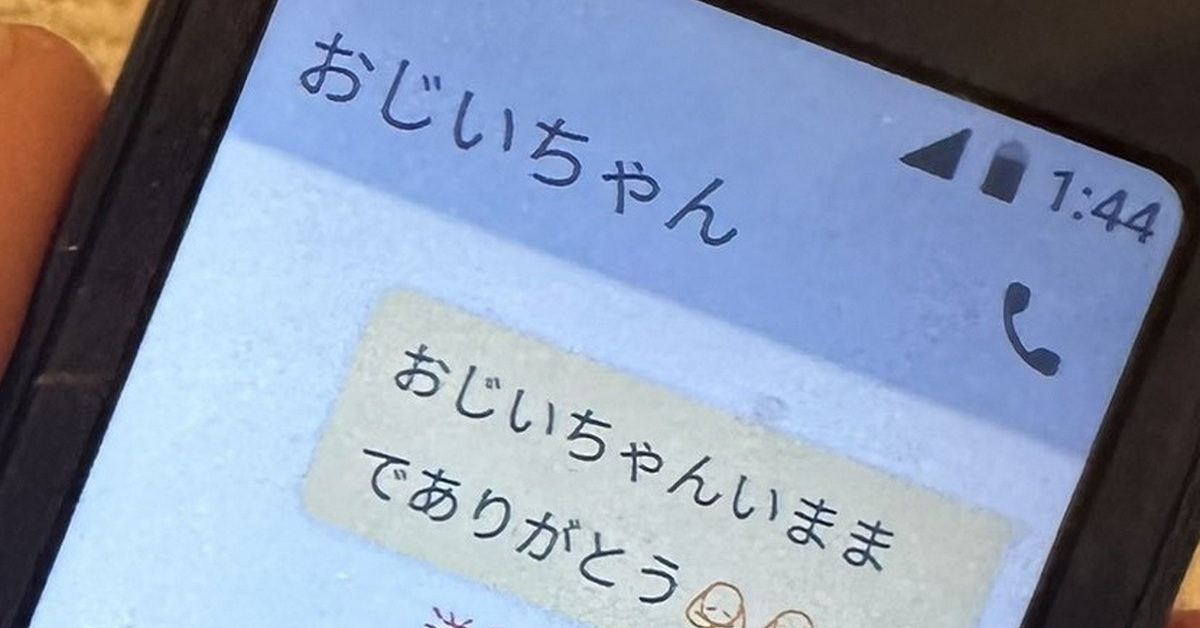 1:44
おじいちゃん
おじいちゃんいまま
でありがとう